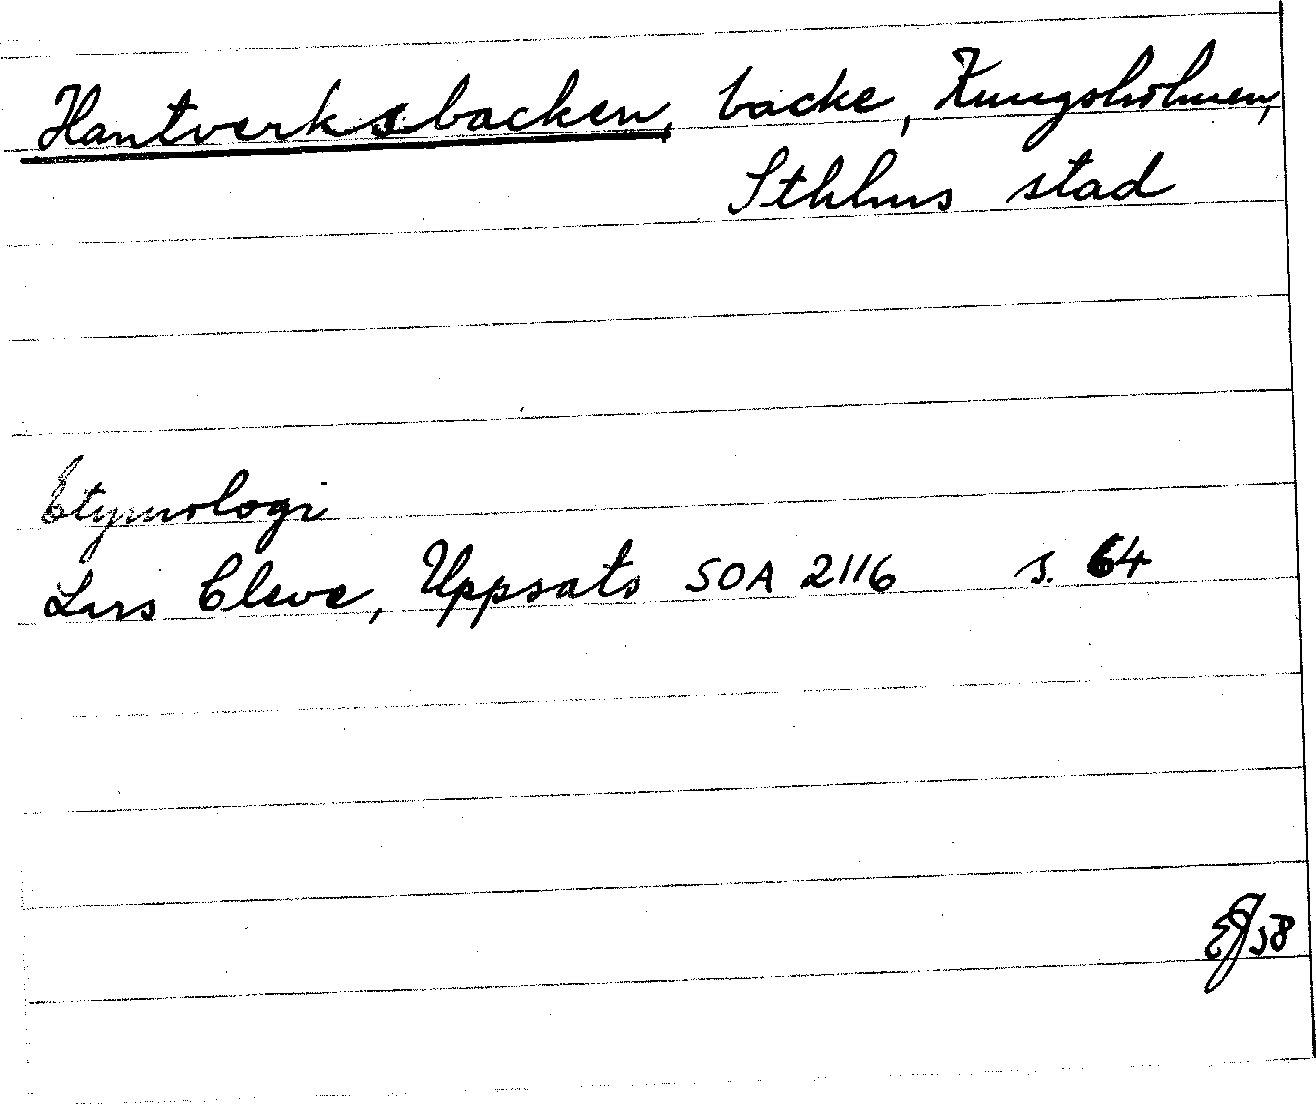 Hantverksbacken, backe, Kungsholmen,
Sthlms stad
Etymologi
Lars Cleve, Uppsats SOA 2116 s. 64